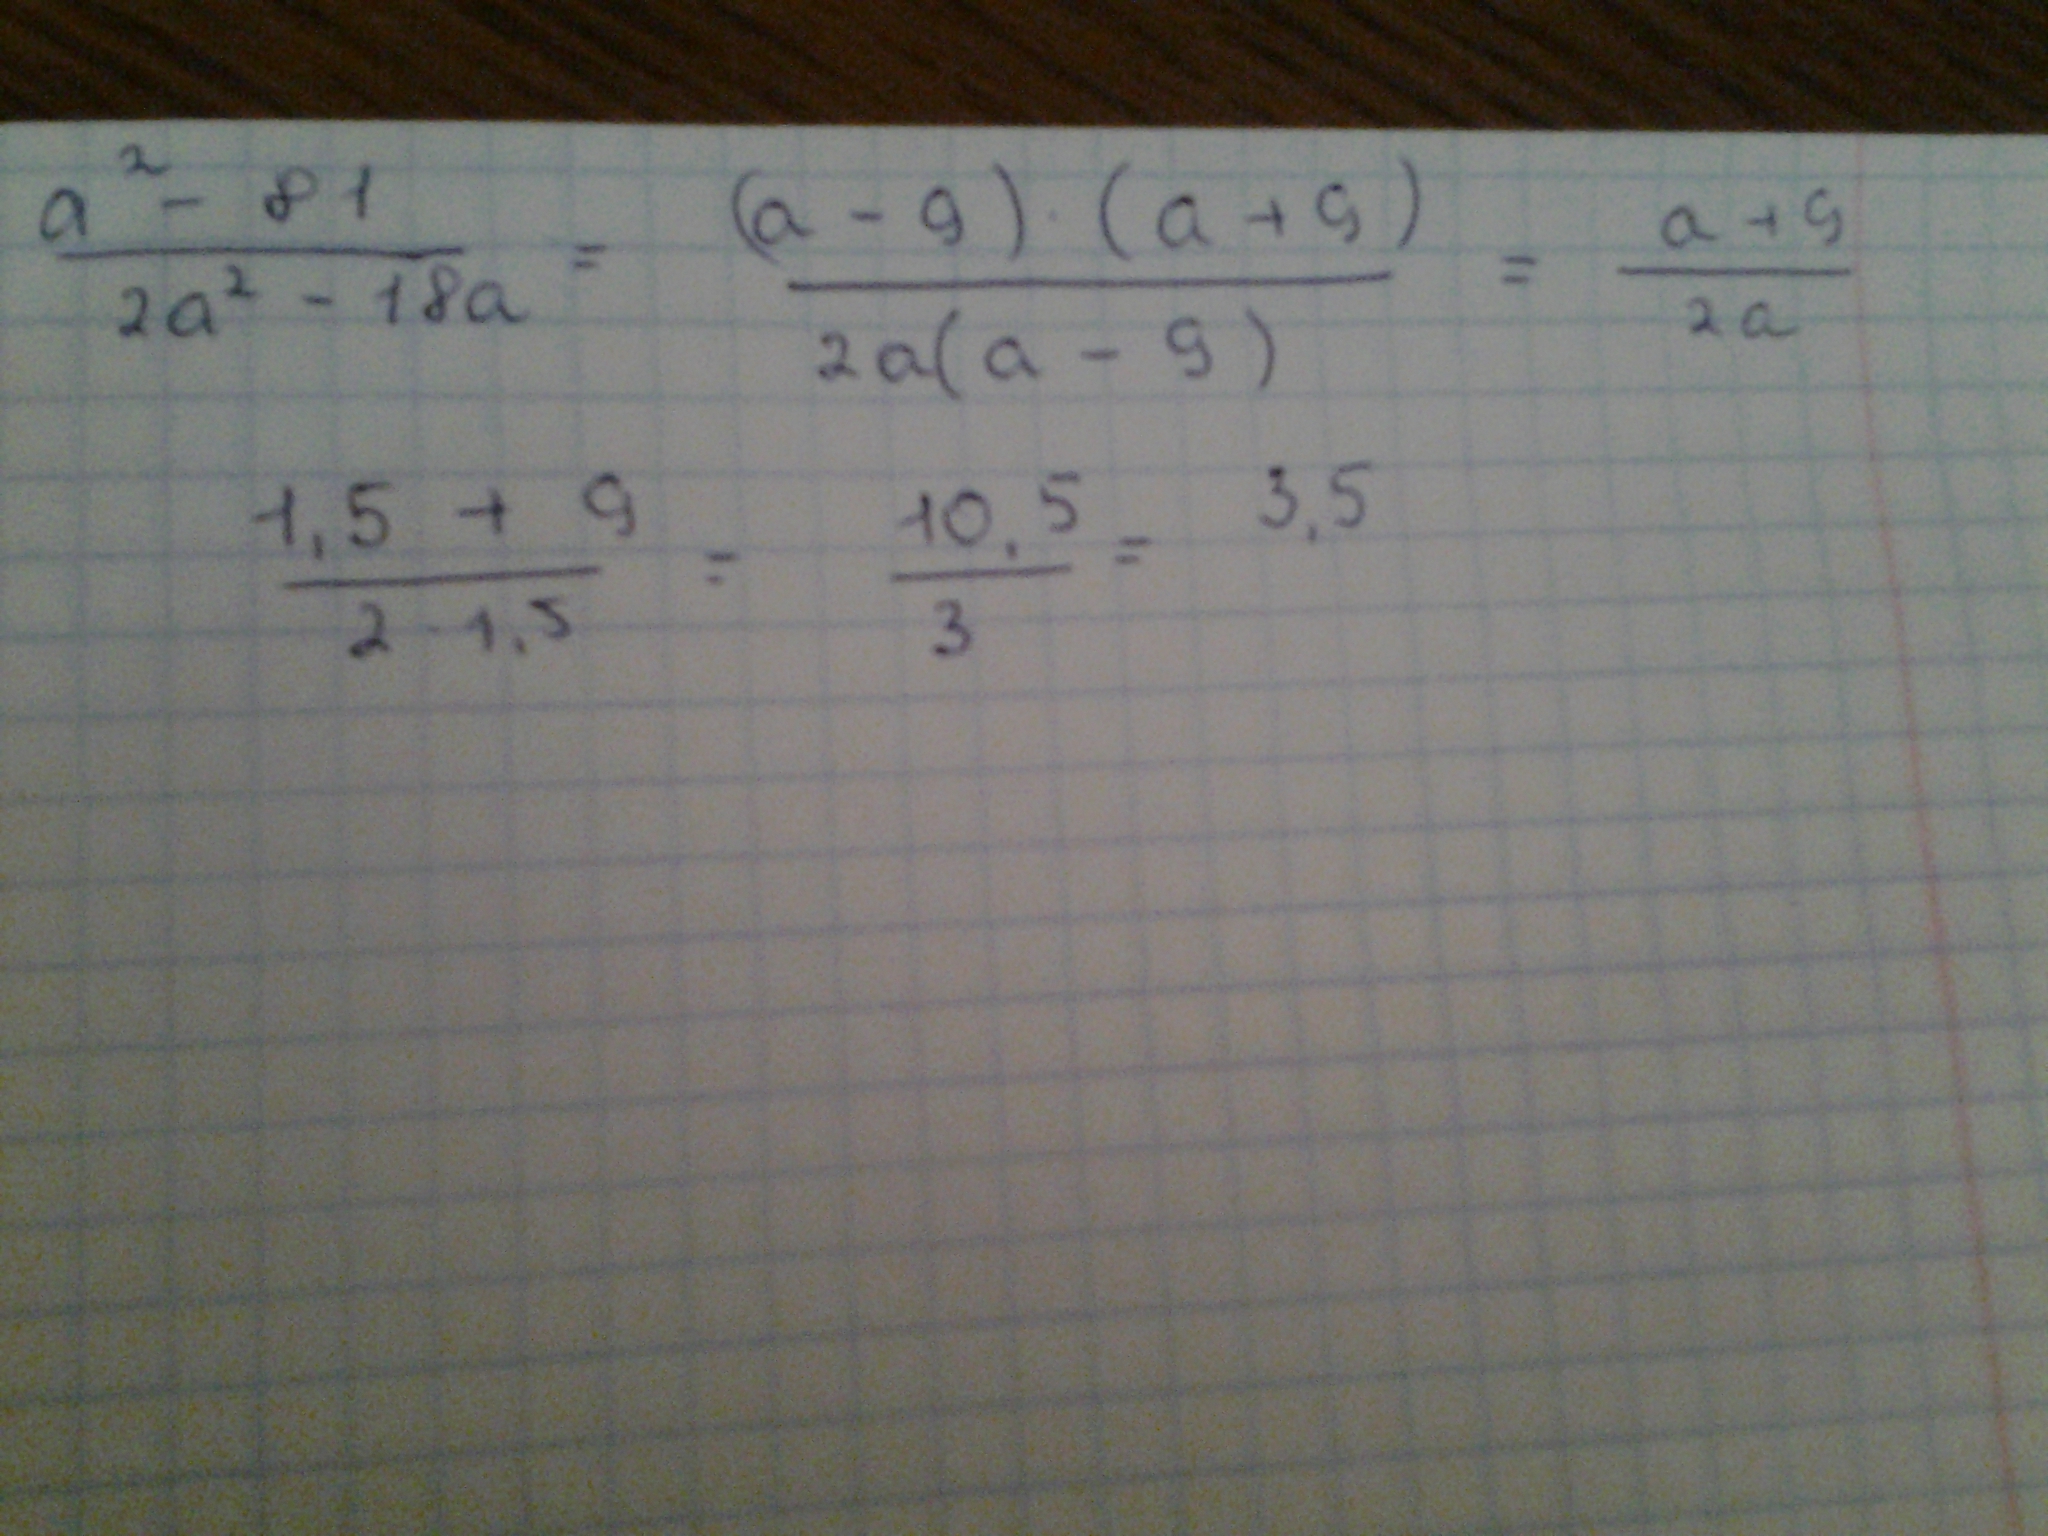 a² - 81 / 2a² - 18a = (a - 9) · (a + 9) / 2a(a - 9) = a + 9 / 2a
1,5 + 9 / 2 · 1,5 = 10,5 / 3 = 3,5